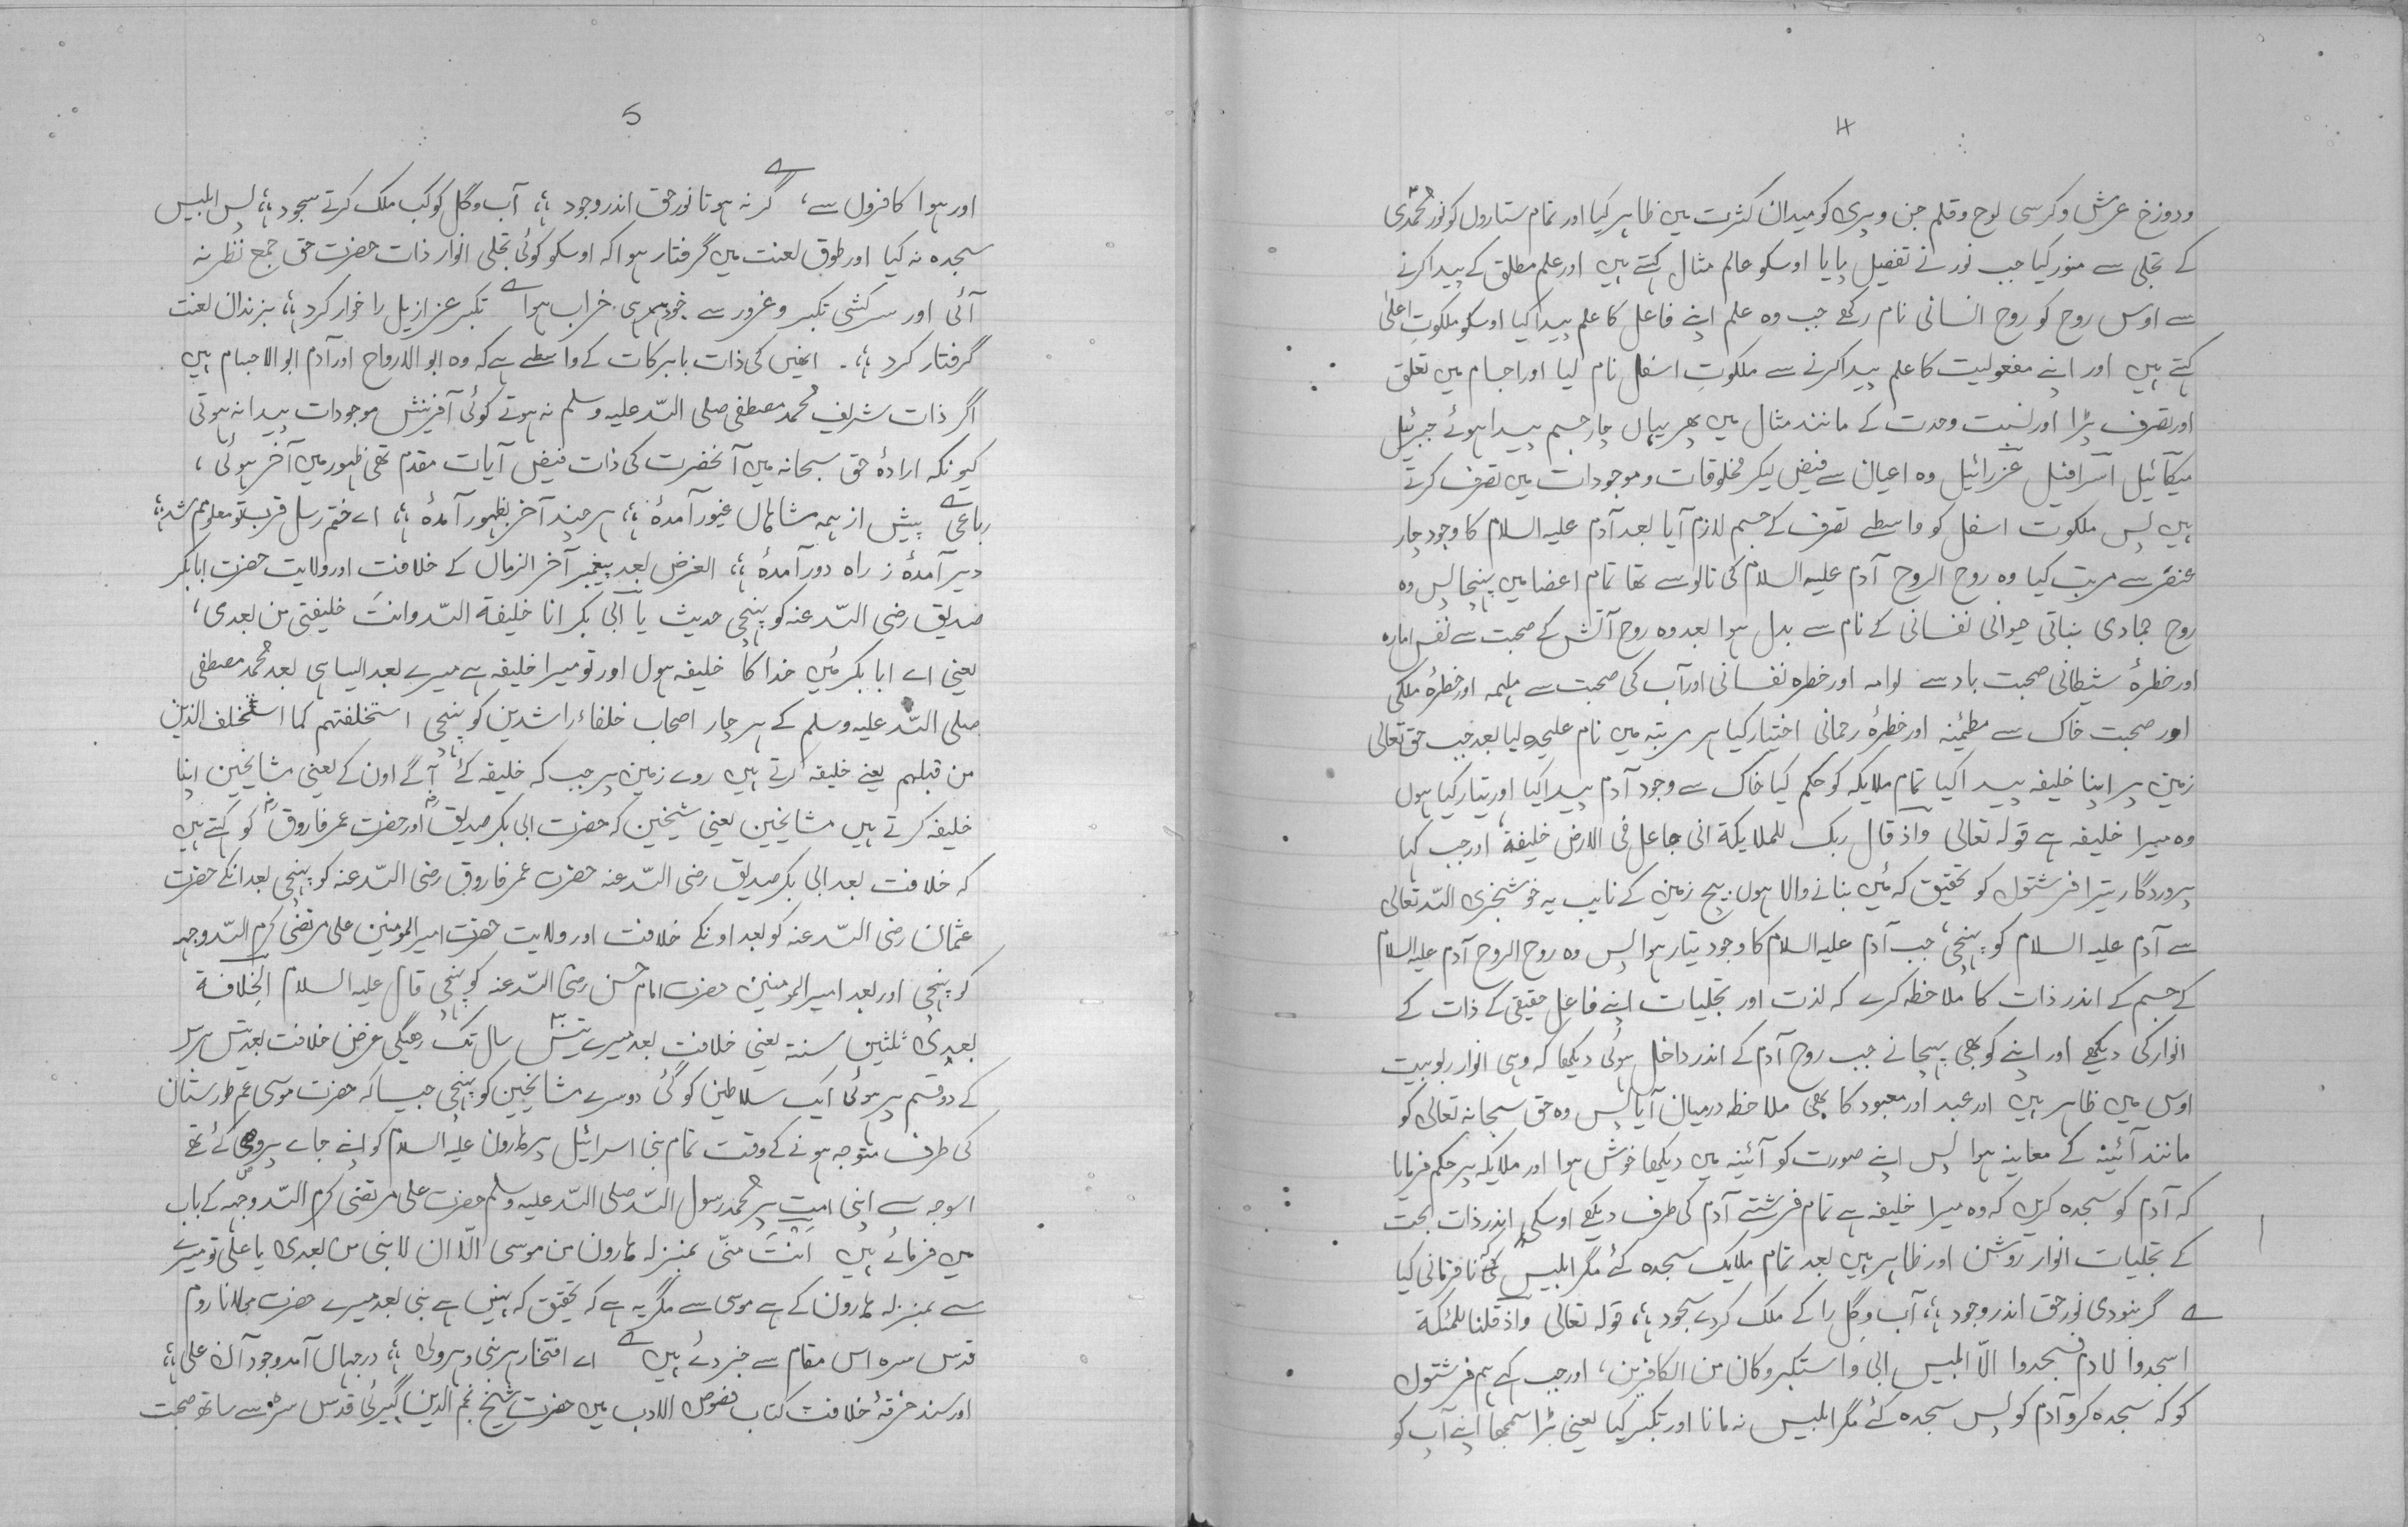 ۴
ودوزخ عرش وکرسی لوح وقلم جن وپری کو میدان کثرت میں ظاہر کیا اور تمام ستاروں کو نور محمدی
کے تجلی سے منور کیا جب نور نے تفصیل پایا اوسکو عالم مثال کہتے ہیں اور علم مطلق کے پیدا کرنے
سے اوس روح کو روح انسانی نام رکھے جب وہ علم اپنے فاعل کا علم پیدا کیا اوسکو ملکوت اعلیٰ
کہتے ہیں اور اپنے مفعولیت کا علم پیدا کرنے سے ملکوتِ اسفل نام لیا اور اجسام میں تعلق
اور تصرف پڑا اور نسبت وحدت کے مانند مثال میں پھر یہاں چار جسم پیدا ہوئے جبرئیل
میکائیل اسرافیل عزرائیل وہ اعیان سے فیض لیکر مخلوقات وموجودات میں تصرف کرتے
ہیں پس ملکوت اسفل کو واسطے تصرف کے جسم لازم آیا بعد آدم علیہ السلام کا وجود چار
عنصر سے مرتب کیا وہ روح الروح آدم علیہ السلام کی تالو سے تھا تمام اعضا میں پہنچا پس وہ
روح جمادی نباتی حیوانی نفسانی کے نام سے بدل ہوا بعد وہ روح آتش کے صحبت سے نفس امارہ
اور خطرۂ شیطانی صحبت باد سے لوامہ اور خطرہ نفسانی اور آب کی صحبت سے ملہمہ اور خطرۂ ملکی
اور صحبت خاک سے مطمئنہ اور خطرۂ رحمانی اختیار کیا ہر مرتبہ میں نام علیحدہ لیا بعد جب حق تعالی
زمین پر اپنا خلیفہ پیدا کیا تمام ملایکہ کو حکم کیا خاک سے وجود آدم پیدا کیا اور تیار کیا ہوں
وہ میرا خلیفہ ہے قولہ تعالی واذ قال ربک للملایکة انی جاعل فی الارض خلیفة اور جب کہا
پروردگار تیرا فرشتوں کو تحقیق کہ میں بنانے والا ہوں بیچ زمین کے نایب یہ خوشخبری اللہ تعالی
سے آدم علیہ السلام کو پہنچی جب آدم علیہ السلام کا وجود تیار ہوا پس وہ روح الروح آدم علیہ السلام
کے جسم کے اندر ذات کا ملاحظہ کرے کہ لذت اور تجلیات اپنے فاعل حقیقی کے ذات کے
انوار کی دیکھے اور اپنے کو بھی پہچانے جب روح آدم کے اندر داخل ہوئی دیکھا کہ وہی انوار ربوبیت
اوس میں ظاہر ہیں اور عبد اور معبود کا بھی ملاحظہ درمیان آیا پس وہ حق سبحانہ تعالی کو
مانند آئینہ کے معاینہ ہوا پس اپنے صورت کو آئینہ میں دیکھا خوش ہوا اور ملایکہ پر حکم فرمایا
کہ آدم کو سجدہ کریں کہ وہ میرا خلیفہ ہے تمام فرشتے آدم کی طرف دیکھے اوسکی اندر ذات بحت
کے تجلیات انوار روشن اور ظاہر ہیں بعد تمام ملایک سجدہ کئے مگر ابلیس نافرمانی کیا
گر نبودی نور حق اندر وجود ؛؛ آب وگل را کے ملک کردے سجود ؛؛ قولہ تعالی واذ قلنا للملئکة
اسجدوا لادم فسجدوا الّا ابلیس ابی واستکبر وکان من الکافرین، اور جب کہے ہم فرشتوں
کو کہ سجدہ کرو آدم کو پس سجدہ کئے مگر ابلیس نہ مانا اور تکبر کیا یعنی بڑا سمجھا اپنے آپ کو
۵
اور ہوا کافروں سے، گر نہ ہوتا نور حق اندر وجود ؛؛ آب وگل کو کب ملک کرتے سجود ؛؛ پس ابلیس
سجدہ نہ کیا اور طوق لعنت میں گرفتار ہوا کہ اوسکو کوئی تجلی انوار ذات حضرت حق جمع نظر نہ
آئی اور سرکشی تکبر وغرور سے خراب ہوا تکبر عزازیل را خوار کرد ؛؛ بزندان لعنت
گرفتار کرد ؛؛ انھیں کی ذات بابرکات کے واسطے ہے کہ وہ ابو الارواح اور آدم ابو الاجسام ہیں
اگر ذات شریف محمد مصطفی صلی اللہ علیہ وسلم نہ ہوتے کوئی آفرینش موجودات پیدا نہ ہوتی
کیونکہ ارادۂ حق سبحانہ میں آنحضرت کی ذات فیض آیات مقدم تھی ظہور میں آخر ہوئی،
رباعی پیش از ہمہ شاہان غیور آمدۂ ؛؛ ہر چند آخر بظہور آمدۂ ؛؛ اے ختم رسل قرب تو معلومم شد ؛؛
دیر آمدۂ ز راہ دور آمدۂ ؛؛ الغرض بعد پیغمبر آخر الزمان کے خلافت اور ولایت حضرت ابابکر
صدیق رضی اللہ عنہ کو پہنچی حدیث یا ابی بکر انا خلیفة اللہ وانتَ خلیفتی من بعدی،
یعنی اے ابابکر میں خدا کا خلیفہ ہوں اور تو میرا خلیفہ ہے میرے بعد ایسا ہی بعد محمد مصطفی
صلی اللہ علیہ وسلم کے ہر چار اصحاب خلفاء راشدین کو پہنچی استخلفتہم کما استخلف الذین
من قبلہم یعنے خلیفہ کرتے ہیں روے زمین پر جب کہ خلیفہ کئے آگے اون کے یعنی مشایخین اپنا
خلیفہ کرتے ہیں مشایخین یعنی شیخین کہ حضرت ابی بکر صدیقؓ اور حضرت عمر فاروقؓ کو کہتے ہیں
کہ خلافت بعد ابی بکر صدیق رضی اللہ عنہ حضرت عمر فاروق رضی اللہ عنہ کو پہنچی بعد انکے حضرت
عثمان رضی اللہ عنہ کو بعد اونکے خلافت اور ولایت حضرت امیر المومنین علی مرتضیٰ کرم اللہ وجہہ
کو پہنچی اور بعد امیر المومنین حضرت امام حسن رضی اللہ عنہ کو پہنچی قال علیہ السلام الخلافة
بعدی ثلثین سنة یعنی خلافت بعد میرے تیس سال تک رہیگی غرض خلافت بعد تیس برس
کے دو قسم پر ہوئی ایک سلاطین کو گئی دوسرے مشایخین کو پہنچی جیسا کہ حضرت موسی عم طورستان
کی طرف متوجہ ہونے کے وقت تمام بنی اسرائیل پر ہارون علیہ السلام کو اپنے جاے پر وصی کئے تھے
اسوجہ سے اپنی امت پر محمد رسول اللہ صلی اللہ علیہ وسلم حضرت علی مرتضی کرم اللہ وجہہ کے باب
میں فرمائے ہیں اَنتَ منّی بمنزلہ ہارون من موسی الّا ان لا نبی من بعدی یا علی تو میرے
سے بمنزلہ ہارون کے ہے موسی سے مگر یہ ہے کہ تحقیق کہ نہیں ہے نبی بعد میرے حضرت مولانا روم
قدس سرہ اس مقام سے خبر دئے ہیں اے افتخار ہر نبی وہر ولی ؛؛ در جہاں آمد وجود آن علی ؛؛
اور سند خرقۂ خلافت کتاب فصوص الاداب میں حضرت شیخ نجم الدین کبیریٰ قدس سرہ سے ساتھ صحبت